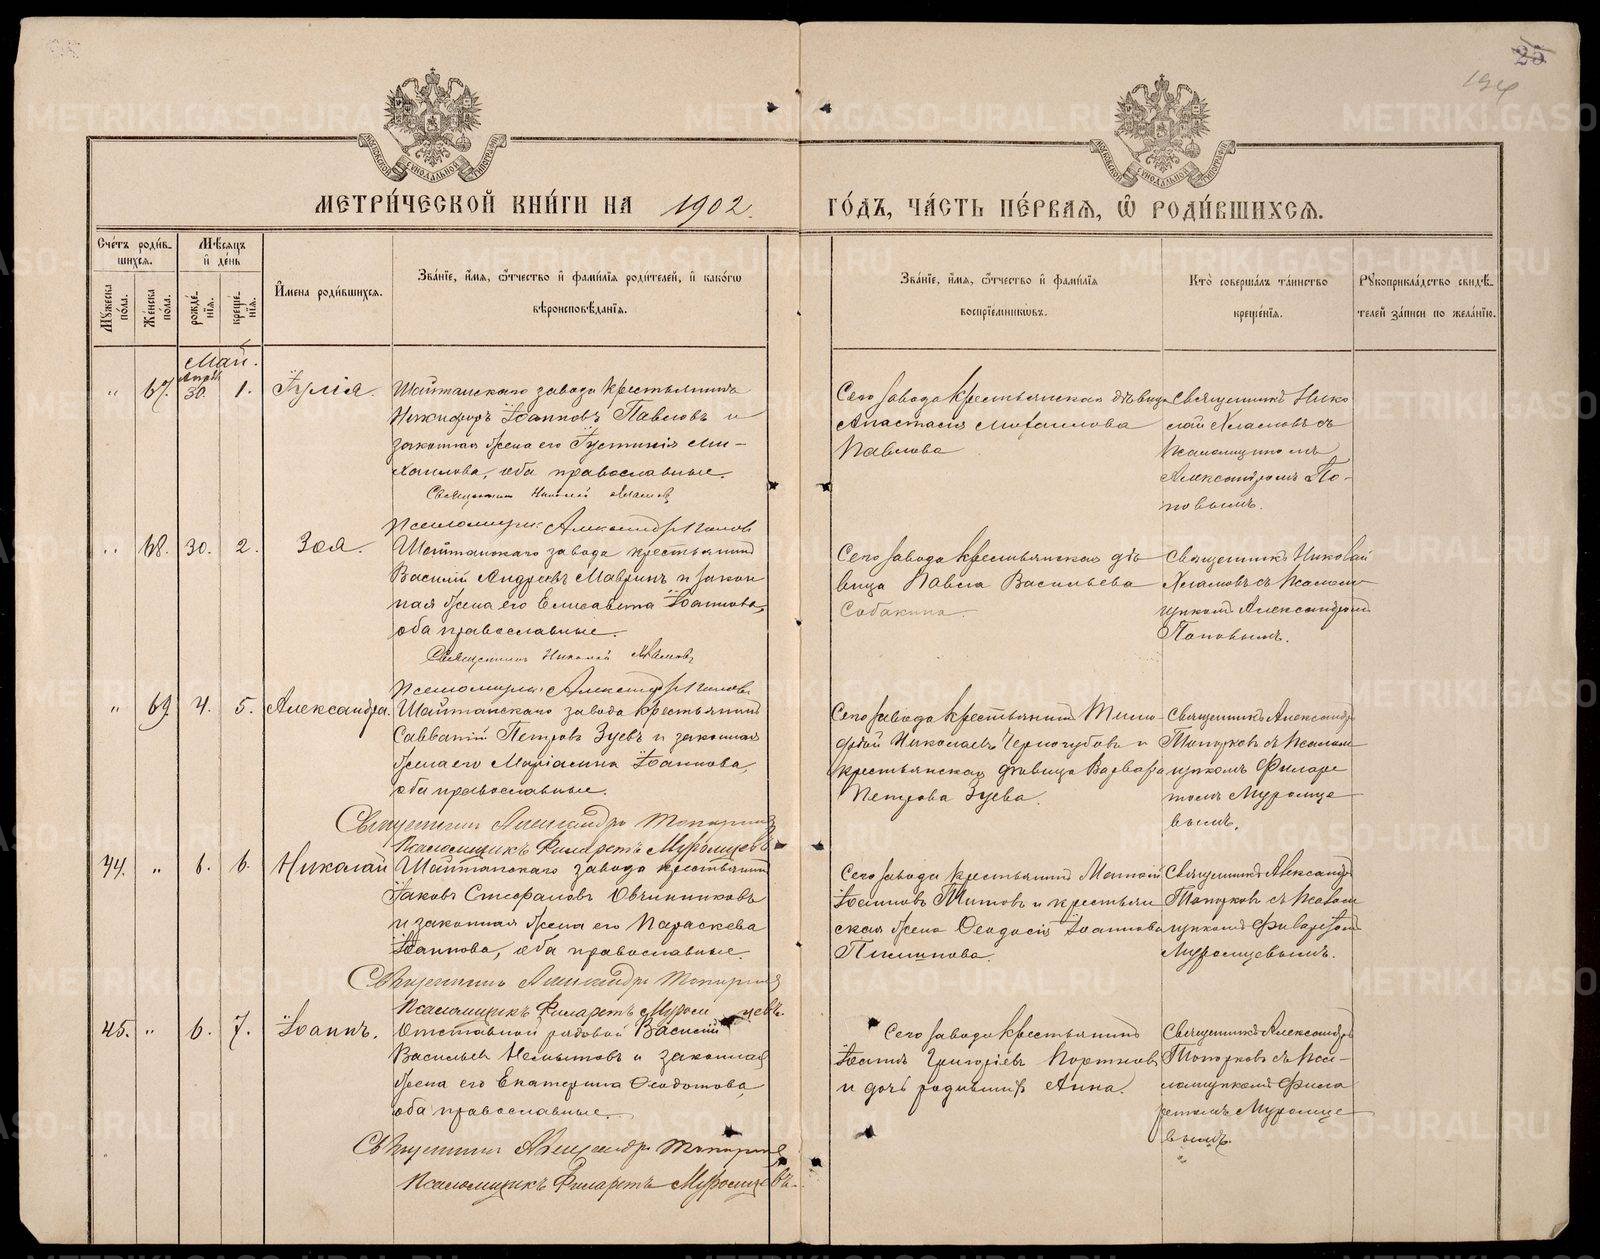 25
194
МЕТРИ́ЧЕСКОЙ КНИ́ГИ НА 1902 ГО́ДЪ, ЧА́СТЬ ПЕ́РВАЯ, Ѡ РОДИ́ВШИХСЯ.
Сче́тъ роди́в-
шихся.
Мꙋ́жеска по́ла.
Же́нска по́ла.
Мѣ́сяцъ и де́нь
рожде́-
нія.
креще́-
нія.
И́мена роди́вшихся.
Зва́ніе, и́мя, ѻ́тчество и фами́лія роди́телей, и како́гѡ
вѣроисповѣ́данія.
Зва́ніе, и́мя, ѻ́тчество и фами́лія
воспріе́мникѡвъ.
Кто̀ соверша́лъ та́инство
креще́нія.
Рꙋкоприкла́дство свидѣ́-
телей за́писи по жела́нію.
Май.
Апрѣл
" 67. 30. 1. Іулія.
Шайтанскаго завода крестьянинъ
Никифоръ Іоанновъ Павловъ и
законная жена его Іустинія Ми-
хаилова, оба православные.
Священникъ Николай Хламовъ
Псаломщикъ Александръ Попов
Сего завода крестьянская дѣвица
Анастасія Михаилова
Павлова
Священникъ Нико
лай Хламовъ съ
псаломщикомъ
Александромъ По-
повымъ.
" 68. 30. 2. Зоя.
Шайтанскаго завода крестьянинъ
Василій Андреевъ Мавринъ и закон
ная жена его Елисавета Іоаннова,
оба православные.
Священникъ Николай Хламовъ
Псаломщикъ Александръ Попов
Сего завода крестьянская дѣ
вица Павла Васильева
Собакина.
Священникъ Николай
Хламовъ съ псалом
щикомъ Александромъ
Поповымъ.
" 69. 4. 5. Александра.
Шайтанскаго завода крестьянинъ
Савватій Петровъ Зуевъ и законная
жена его Маріамна Іоаннова,
оба православные.
Священникъ Александръ Топорковъ
Псаломщикъ Филаретъ Муромцевъ
Сего завода крестьянинъ Тимо
фей Николаевъ Черногубовъ и
крестьянская дѣвица Варвара
Петрова Зуева.
Священникъ Александръ
Топорковъ съ псалом
щикомъ Филаре
томъ Муромце
вымъ.
44. " 6. 6. Николай
Шайтанскаго завода крестьянинъ
Іаковъ Стефановъ Овчинниковъ
и законная жена его Параскева
Іоаннова, оба православные.
Священникъ Александръ Топорковъ
Псаломщикъ Филаретъ Муромцевъ.
Сего завода крестьянинъ Матѳій
Іоанновъ Титовъ и крестьян
ская жена Ѳеодосія Іоаннова
Священникъ Александръ
Топорковъ съ псалом
щикомъ Филаретомъ
Муромцевымъ.
45. " 6. 7. Іоаннъ.
Отставной рядовой Василій
Васильев и законная
жена его Екатерина Ѳеодотова,
оба православные.
Священникъ Александръ Топорковъ
Псаломщикъ Филаретъ Муромцевъ.
Сего завода крестьянинъ
Іоаннъ Григоріевъ Портновъ
и дочь родившихъ Анна.
Священникъ Александръ
Топорковъ съ пса-
ломщикомъ Фила
ретомъ Муромце
вымъ.
METRIKI.GASO-URAL.RU